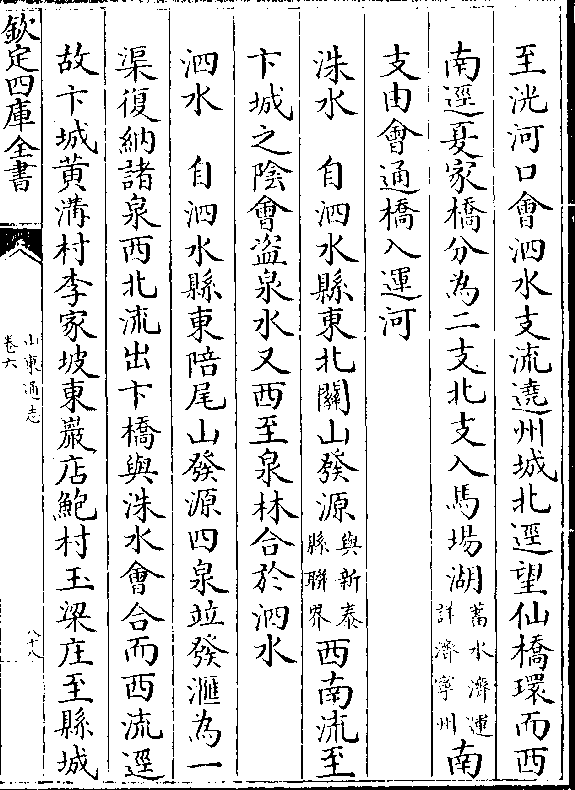 至洸河口會泗水支流遶州城北逕望仙橋環而西
南逕夏家橋分為二支北支入馬場湖蓄水濟運詳濟寧州南
支由會通橋入運河
洙水　自泗水縣東北關山發源與新泰縣聯界西南流至
卞城之陰會盗泉水又西至泉林合於泗水
泗水　自泗水縣東陪尾山發源四泉並發滙為一
渠復納諸泉西北流出卞橋與洙水會合而西流逕
故卞城黄溝村李家坡東巖店鮑村玉梁庄至縣城
欽定四庫全書
山東通志
卷六
八十八